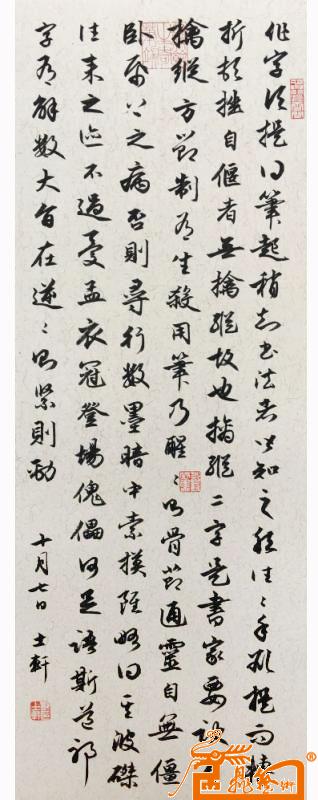 作字須提得筆起稍知書法者皆知之然往〻手欲提而轉
折頓挫自偃者無擒縱故也擒縱二字是書家要訣
擒縱方節制有生殺用筆乃醒〻則骨節通靈自無僵
卧紙上之病否則尋行數墨暗中索摸雖略得其波磔
往來之迹不過憂孟衣冠登場傀儡何足語斯道耶
字有解數大旨在逆〻則緊則勁
十月七日 士軒